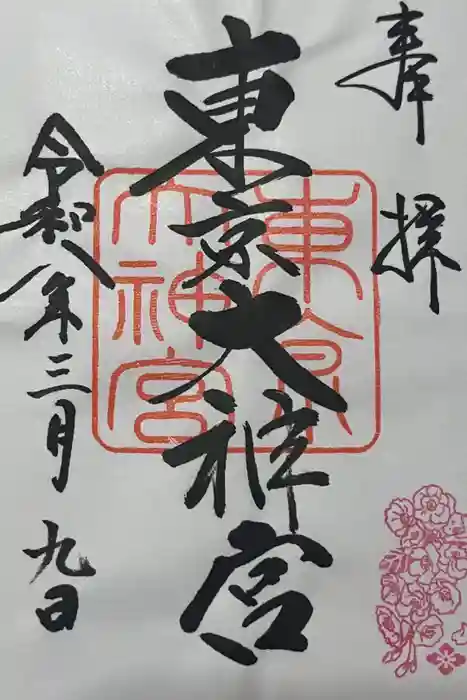 奉拝
東京大神宮
令和八年三月九日
東京大神宮